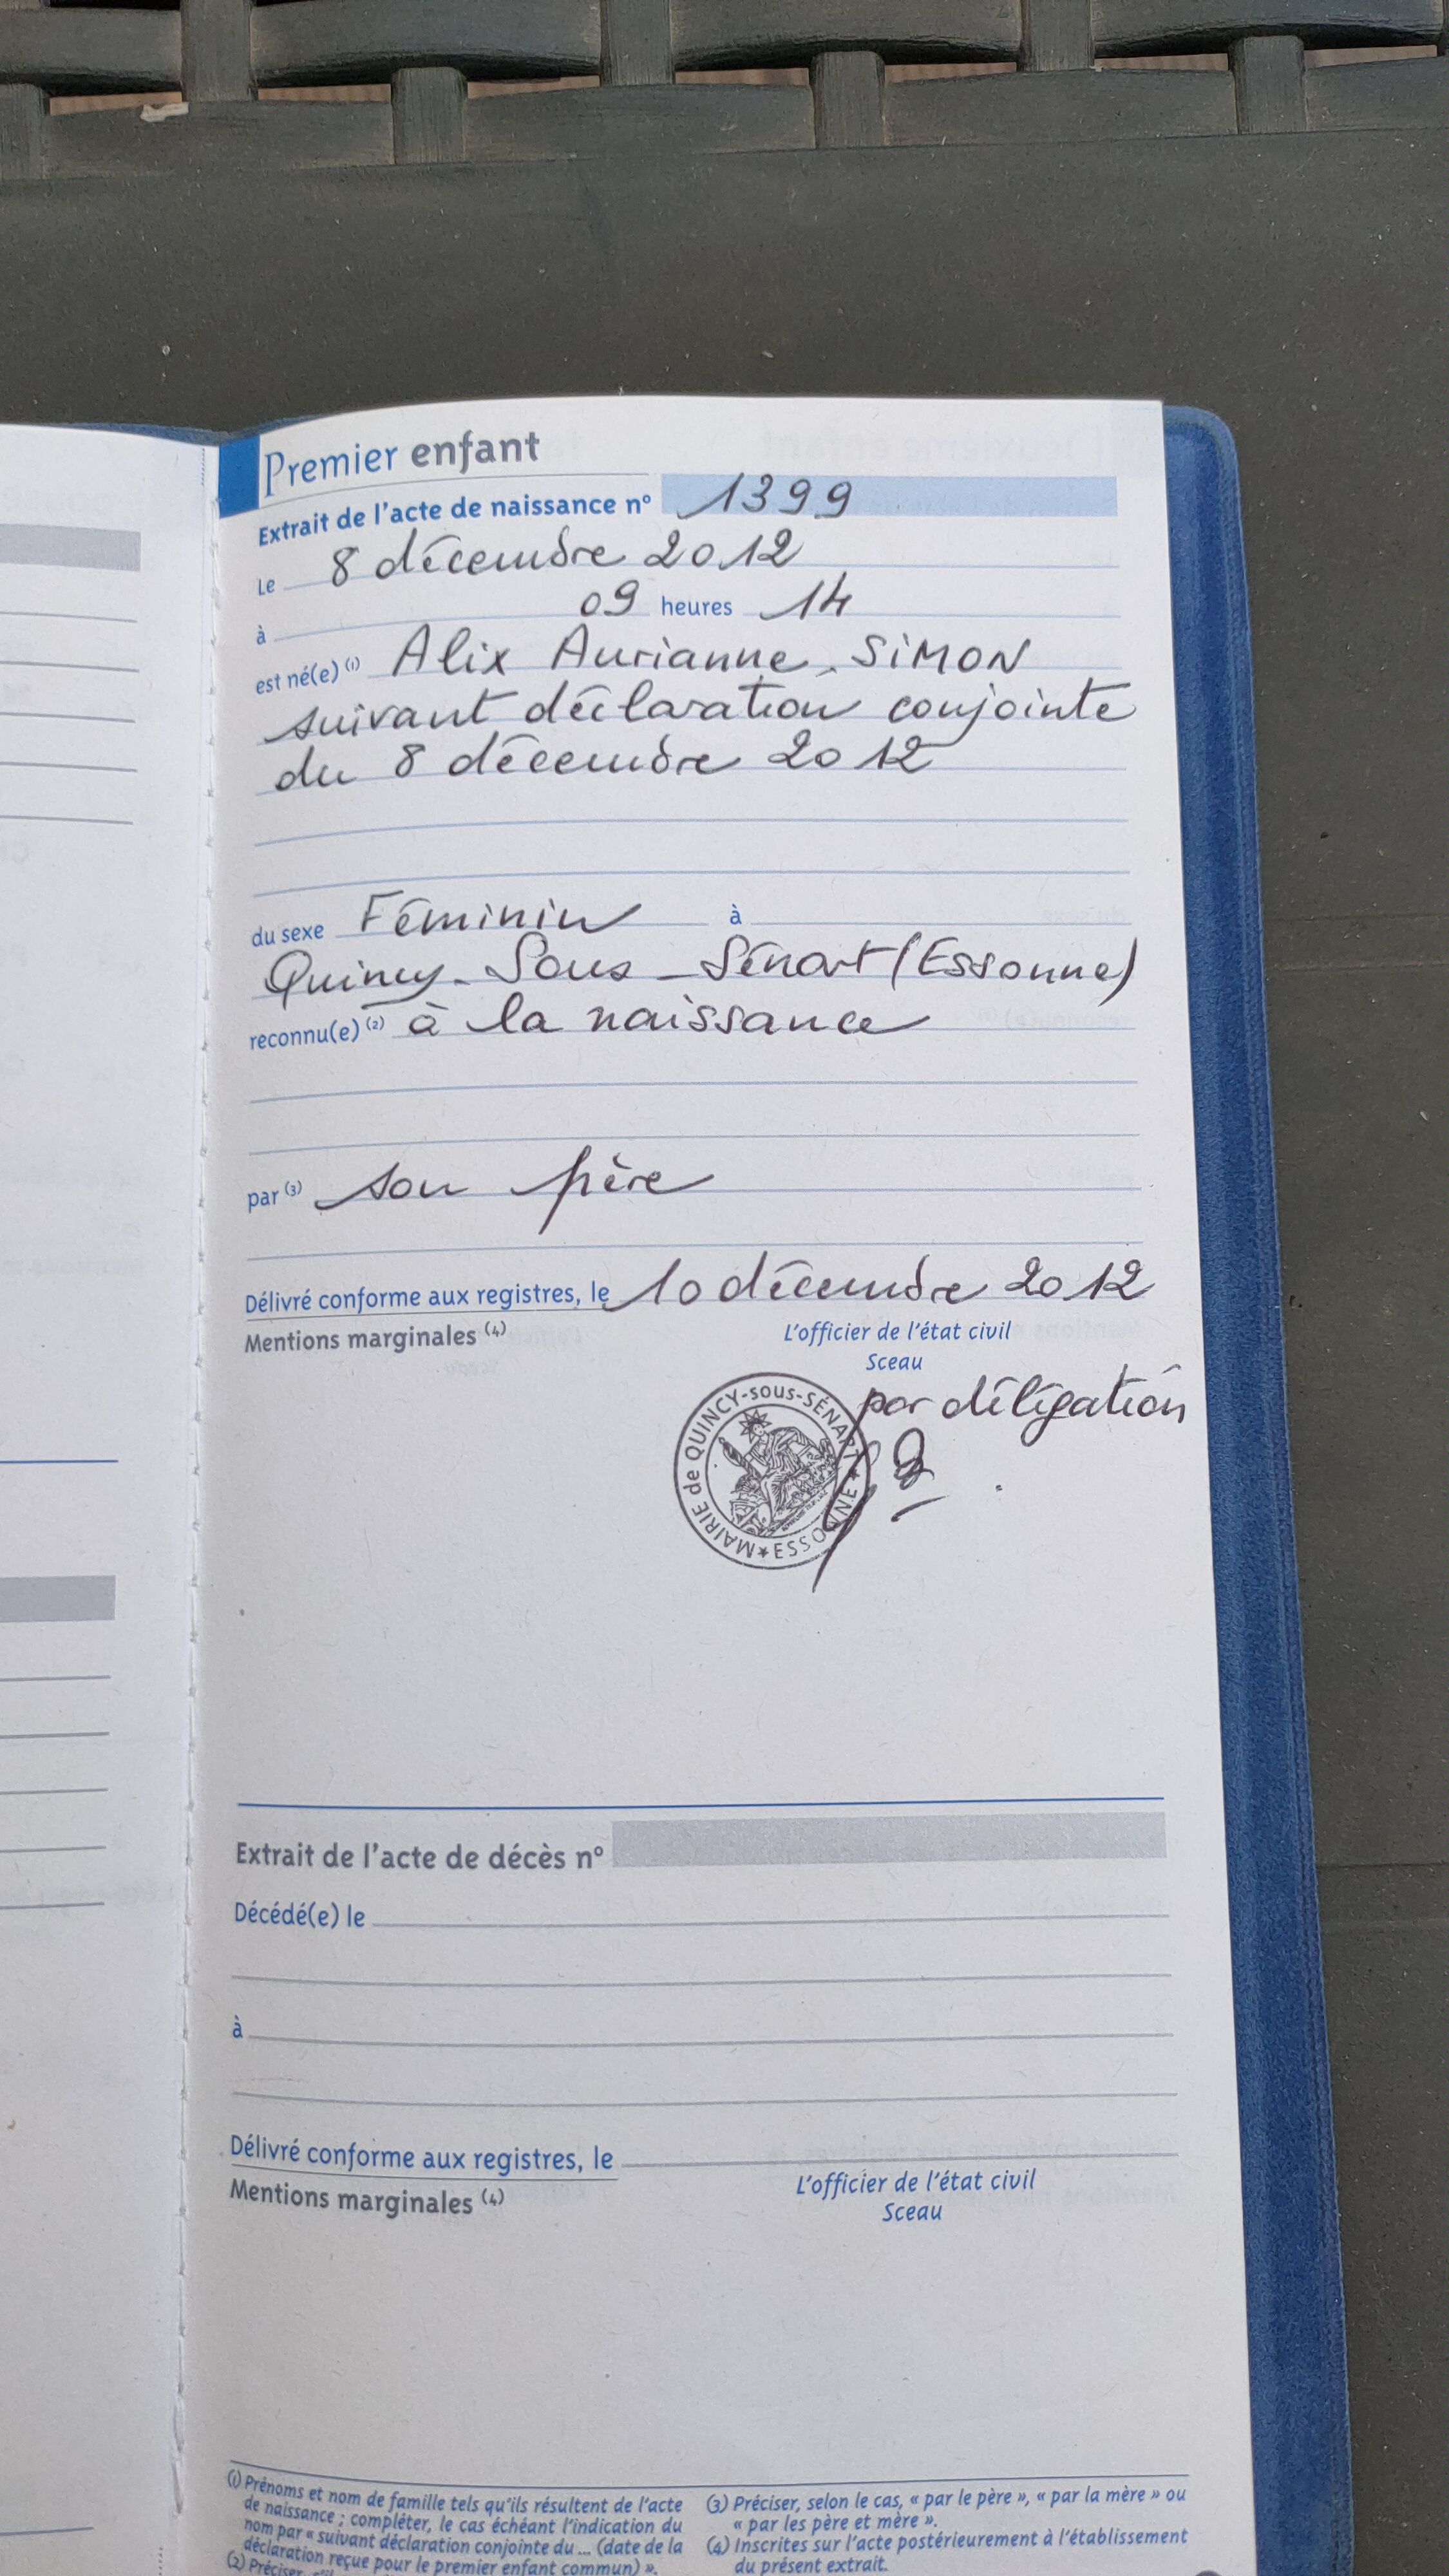 Premier enfant
Extrait de l'acte de naissance n° 1399
Le 8 décembre 2012
à 09 heures 14
est né(e) (1) Alix Aurianne SIMON
suivant déclaration conjointe
du 8 décembre 2012
du sexe Féminin à
Quincy-Sous-Sénart (Essonne)
reconnu(e) (2) à la naissance
par (3) son père
Délivré conforme aux registres, le 10 décembre 2012
Mentions marginales (4)
L'officier de l'état civil
Sceau
par délégation
MAIRIE de QUINCY-sous-SÉNART ★ ESSONNE ★
Extrait de l'acte de décès n°
Décédé(e) le
à
Délivré conforme aux registres, le
Mentions marginales (4)
L'officier de l'état civil
Sceau
(1) Prénoms et nom de famille tels qu'ils résultent de l'acte
de naissance ; compléter, le cas échéant l'indication du
nom par « suivant déclaration conjointe du ... (date de la
déclaration reçue pour le premier enfant commun) ».
(2) Préciser,
(3) Préciser, selon le cas, « par le père », « par la mère » ou
« par les père et mère ».
(4) Inscrites sur l'acte postérieurement à l'établissement
du présent extrait.